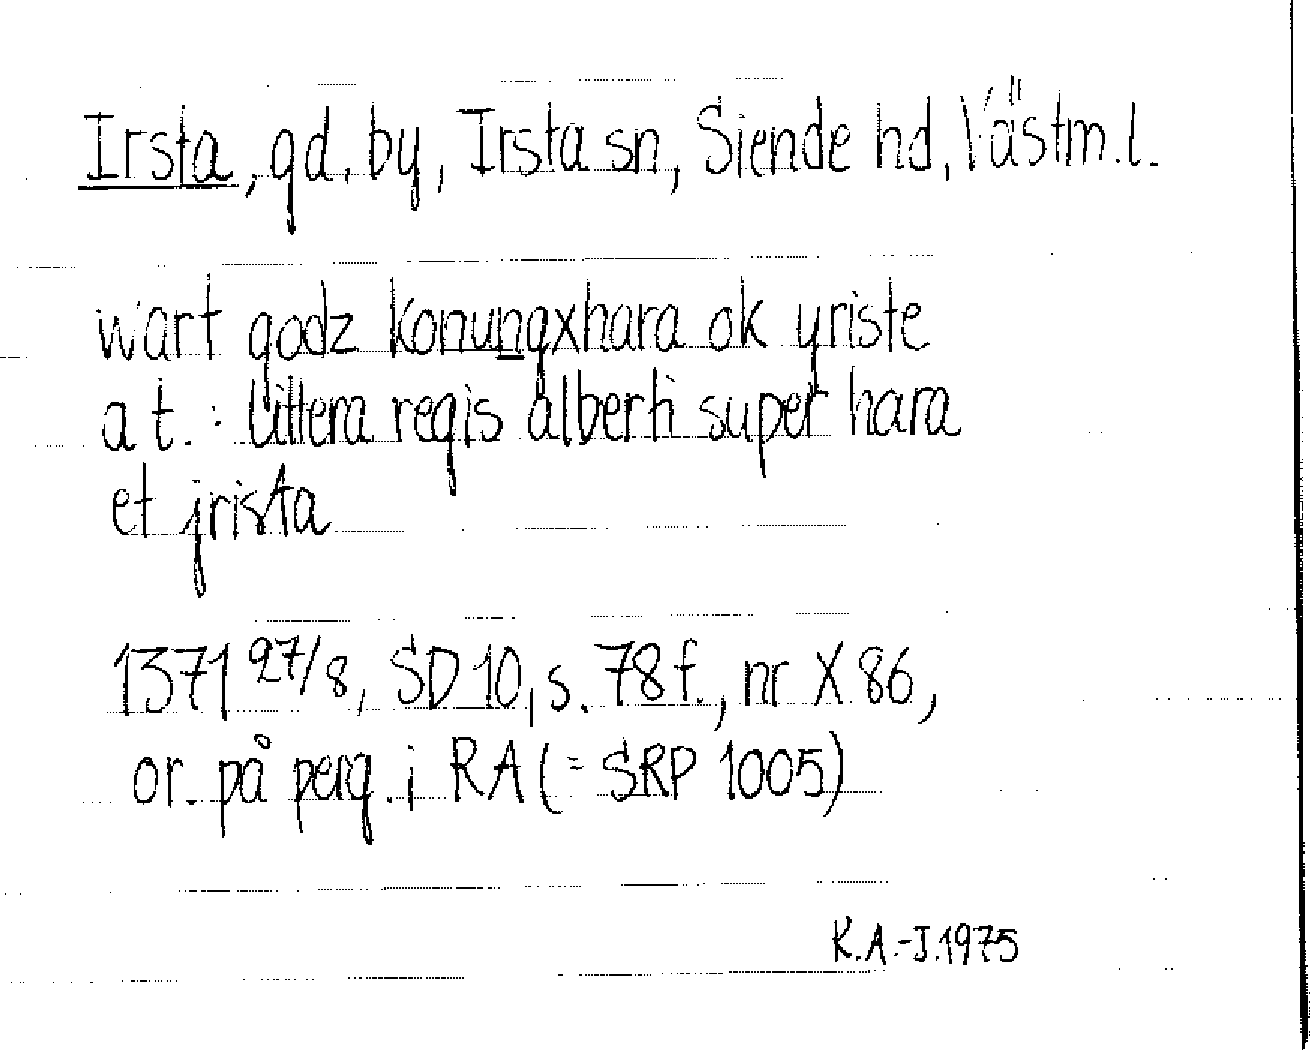 Irsta, gd. by, Irsta sn, Siende hd, Västm. l.
wart godz konungxhara ok yriste
a t. : littera regis alberti super hara
et jrista
1371 27/8, SD 10, s. 78 f., nr X 86,
or. på perg. i RA (= SRP 1005)
K.A.-J. 1975